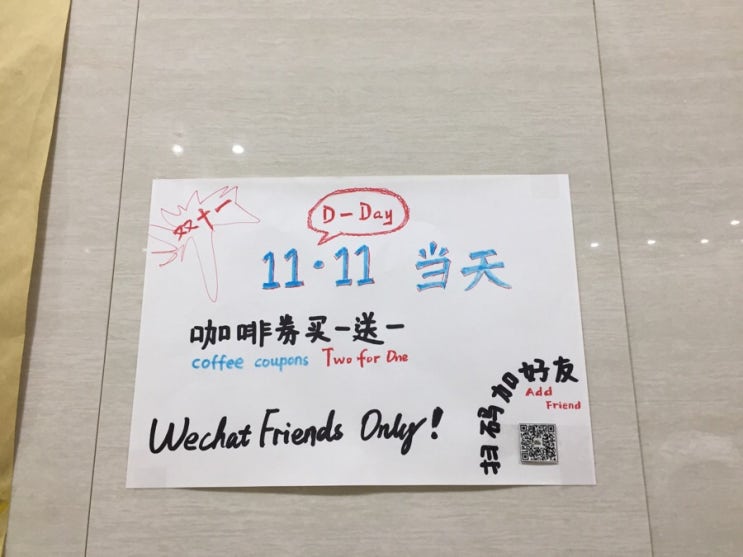 双十一
D-Day
11·11 当天
咖啡券买一送一
coffee coupons Two for One
扫码加好友
Add
Friend
Wechat Friends Only!